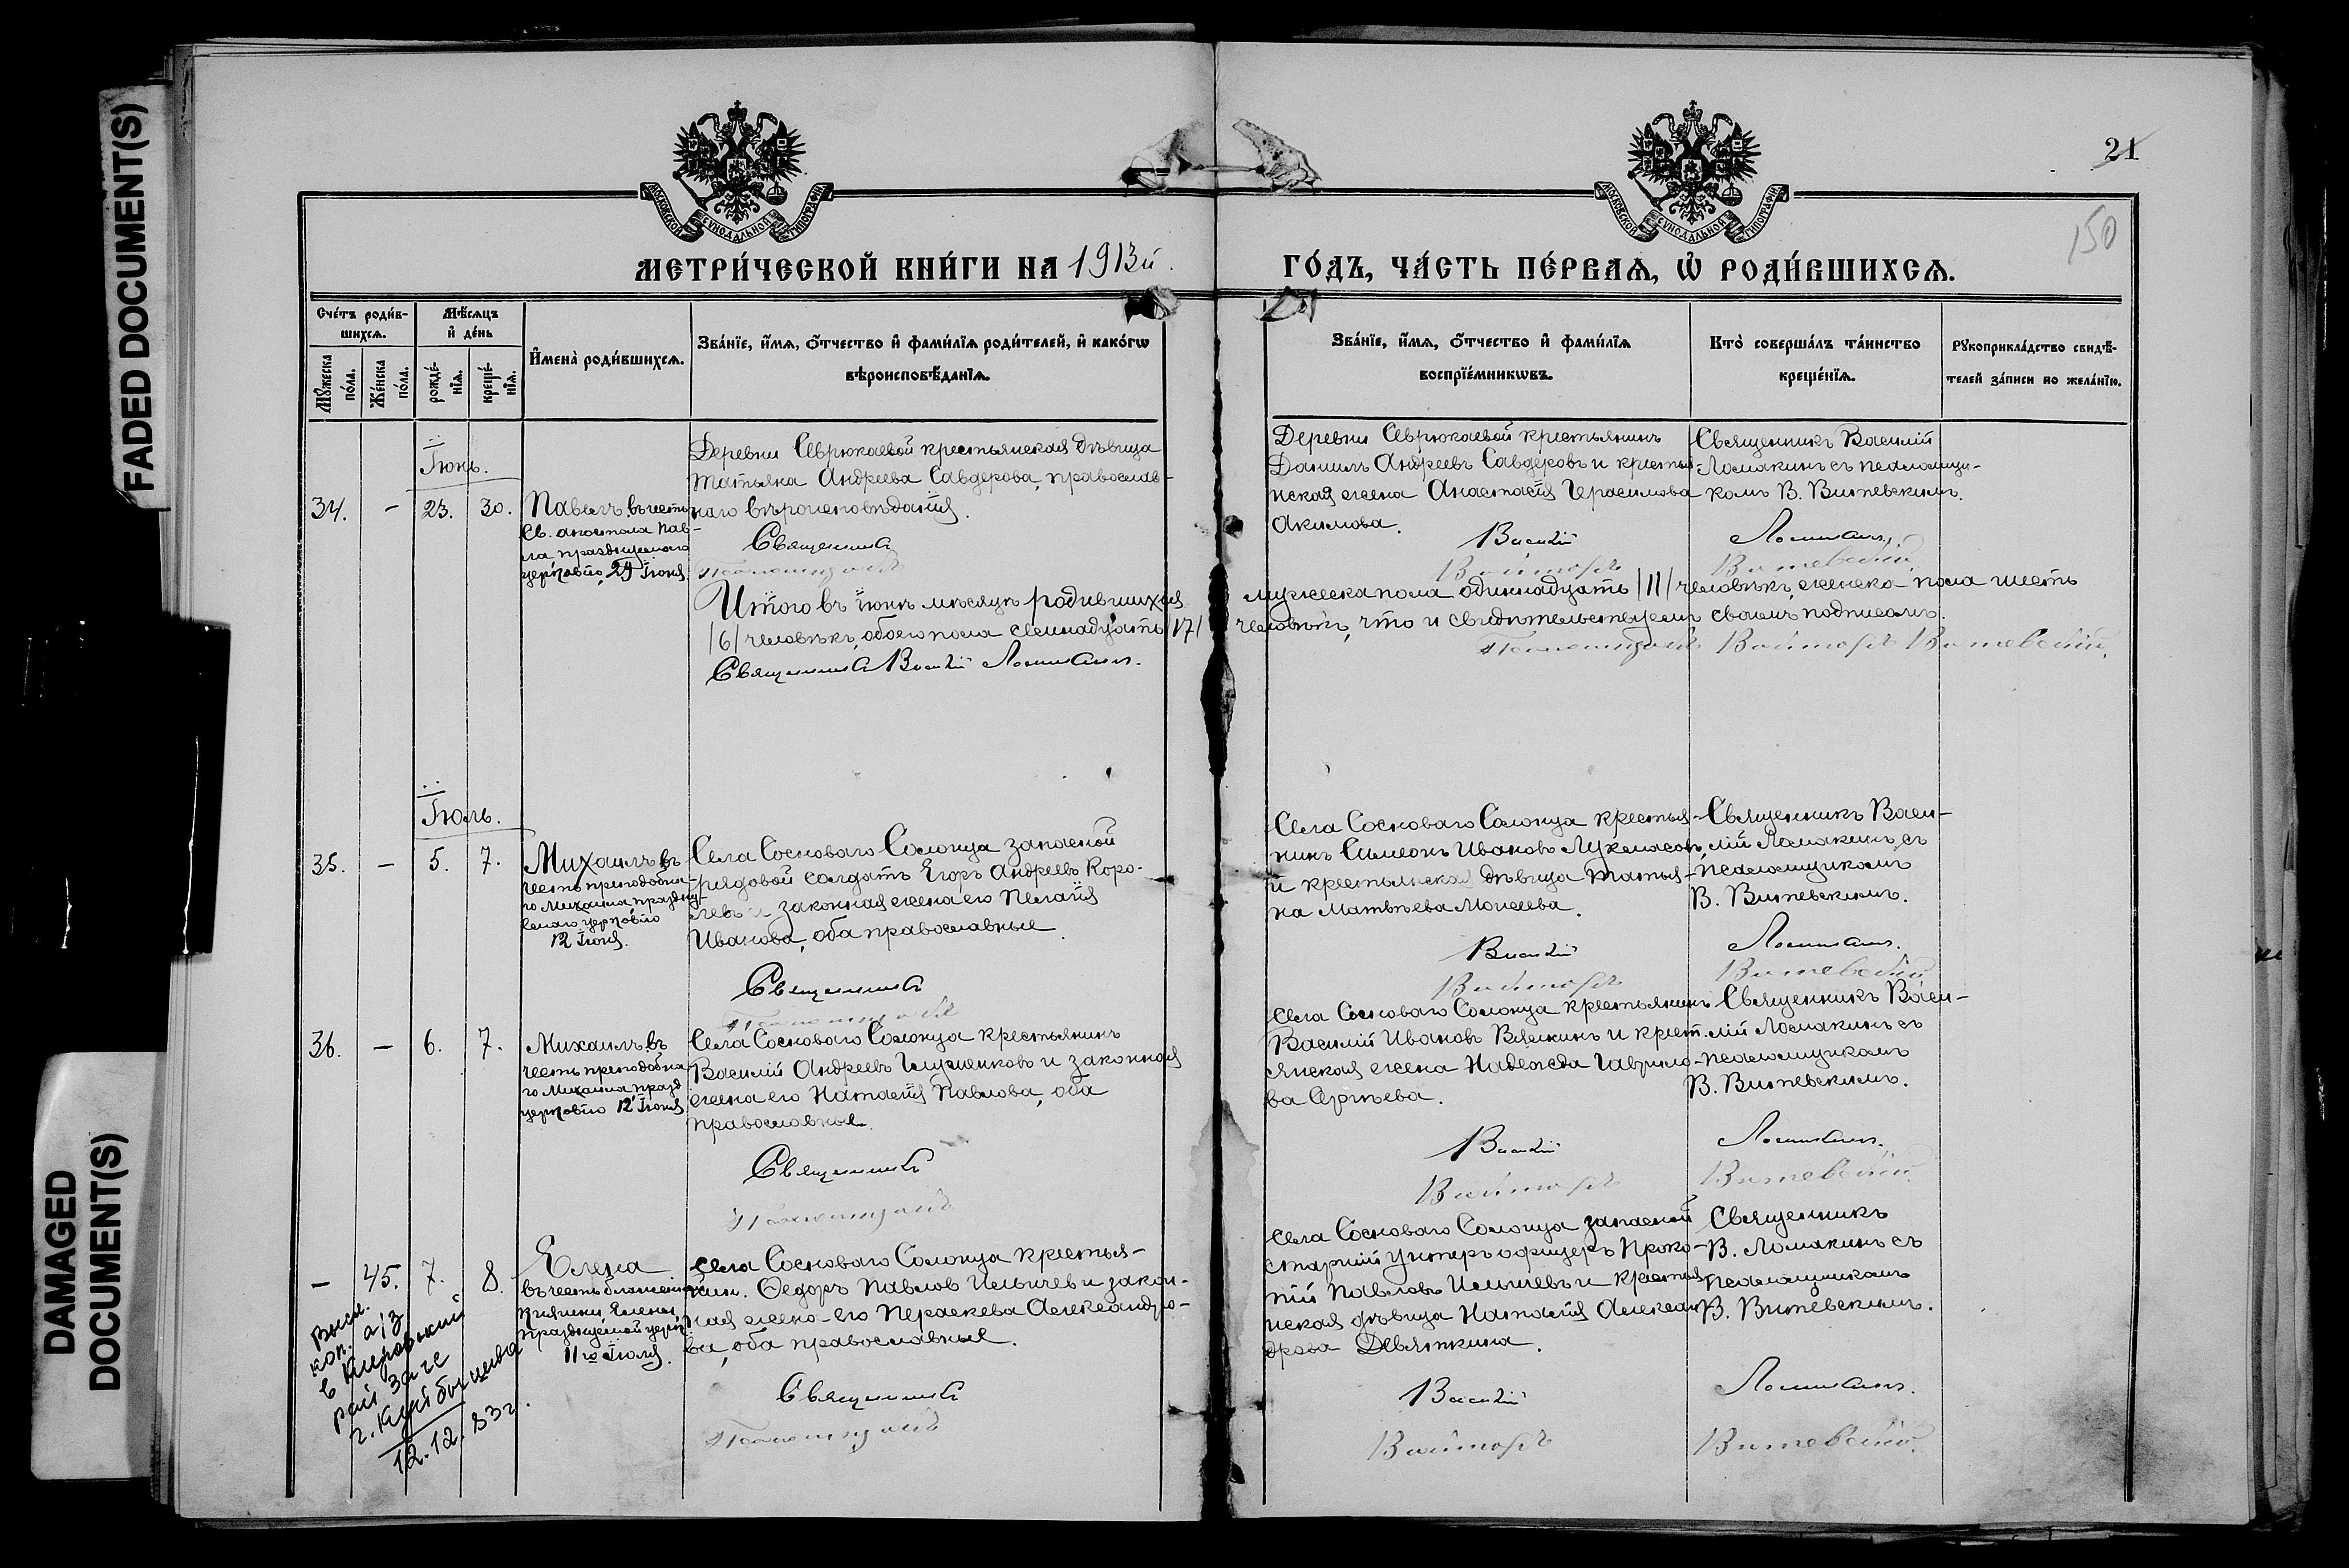 FADED DOCUMENT(S)
DAMAGED
DOCUMENT(S)
21
150
МОСКОВСКОЙ СѴНОДАЛЬНОЙ ТИПОГРАФІИ
МОСКОВСКОЙ СѴНОДАЛЬНОЙ ТИПОГРАФІИ
МЕТРИ́ЧЕСКОЙ КНИ́ГИ НА 1913й.
ГО́ДЪ, ЧА́СТЬ ПЕ́РВАѦ, Ѡ РОДИ́ВШИХСѦ.
Сче́тъ роди́в-
шихсѧ.
Мꙋ́жеска по́ла.
Же́нска по́ла.
Мѣ́сѧцъ
и҆ де́нь
рожде́-нїѧ.
креще́-нїѧ.
И҆мена̀ роди́вшихсѧ.
Зва́нїе, и҆́мѧ, ѻ҆́тчество и҆ фами́лїѧ роди́телей, и҆ како́гѡ
вѣроисповѣ́данїѧ.
Зва́нїе, и҆́мѧ, ѻ҆́тчество и҆ фами́лїѧ
воспрїе́мникѡвъ.
Кто̀ соверша́лъ та́инство
креще́нїѧ.
Рꙋкоприкла́дство свидѣ́-
телей за́писи по жела́нїю.
Іюнь.
34. - 23. 30.
Павелъ, въ честь
Св. апостола Пав-
ла празднуемаго
церковію 29 Іюня.
Деревни Севрюкаевой крестьянская дѣвица
Татьяна Андреева Савдерова, православ-
наго вѣроисповѣданія.
Священникъ
Псаломщикъ
Деревни Севрюкаевой крестьянинъ
Даніилъ Андреевъ Савдеровъ и крестья-
нская жена Анастасія Герасимова
Акимова.
Василій
Викторъ
Священникъ Василій
Ломакинъ съ псаломщи-
комъ В. Витевскимъ.
Ломакинъ
Витевскій
Итого въ іюнѣ мѣсяцѣ родившихся мужеска пола одиннадцать /11/ человѣкъ, женска-пола шесть
/6/ человѣкъ, обоего пола семнадцать /17/ человѣкъ, что и свидѣтельствуемъ своимъ подписомъ.
Священникъ Василій Ломакинъ.
Псаломщикъ Викторъ Витевскій.
Іюль.
35. - 5. 7.
Михаилъ въ
честь преподобна-
го Михаила праздну-
емаго церковію
12 Іюля.
Села Сосноваго Солонца запасной
рядовой солдатъ Егоръ Андреевъ Коро-
левъ и законная жена его Пелагія
Иванова, оба православные.
Священникъ
Псаломщикъ
Села Сосноваго Солонца крестья-
нинъ Симеонъ Ивановъ
и крестьянская дѣвица Татья-
на Матвѣева Моисеева.
Василій
Викторъ
Священникъ Васи-
лій Ломакинъ съ
псаломщикомъ
В. Витевскимъ.
Ломакинъ.
Витевскій
36. - 6. 7.
Михаилъ въ
честь преподобна-
го Михаила празд
церковію 12 Іюля
Села Сосноваго Солонца крестьянинъ
Василій Андреевъ и законная
жена его Наталія Павлова, оба
православные.
Священникъ
Псаломщикъ
Села Сосноваго Солонца крестьянинъ
Василій Ивановъ и крест.
янская жена Надежда Гаврило-
ва
Василій
Викторъ
Священникъ Васи-
лій Ломакинъ съ
псаломщикомъ
В. Витевскимъ.
Ломакинъ.
Витевскій.
- 45. 7. 8.
Елена
въ честь блаженной
Княгини Елены
празднуемой церк.
11го Іюля.
Села Сосноваго Солонца крестья-
нин. Ѳедоръ Павлов Ильичев и закон-
ная жена-его Параскева Александро-
ва, оба православные.
Священникъ
Псаломщикъ
Села Сосноваго Солонца запасной
старшій унтеръ офицеръ Проко-
пій Павловъ Ильичевъ и крестья
нская дѣвица Наталія Алексан-
дрова Девяткина.
Василій
Викторъ
Священникъ
В. Ломакинъ съ
псаломщикомъ
В. Витевскимъ.
Ломакинъ.
Витевскій.
Высл.
коп. а/з
в Кировский
рай загс
г. Куйбышева
12.12.83г.